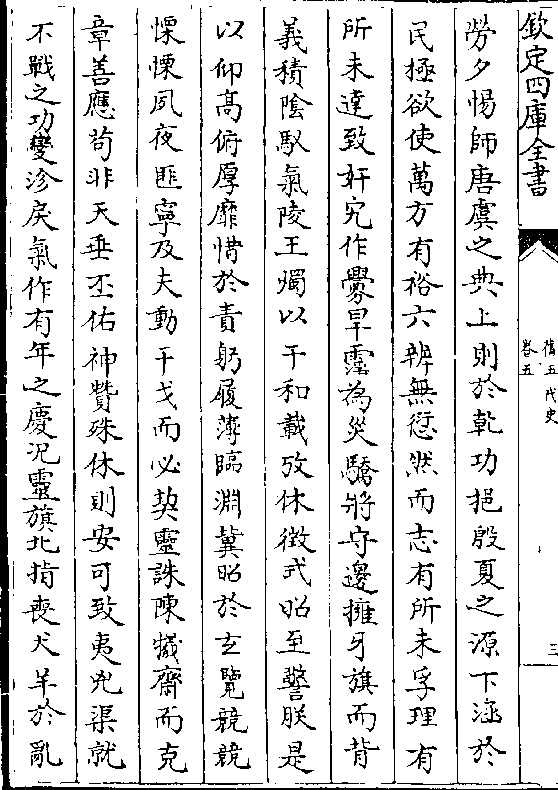 欽定四庫全書
舊五代史
卷五
三
勞夕惕師唐虞之典上則於乾功挹殷夏之源下涵於
民極欲使萬方有裕六辨無愆然而志有所未孚理有
所未達致奸宄作釁旱霪為災驕將守邊擁牙旗而背
義積陰馭氣陵玉燭以干和載攷休徵式昭至警朕是
以仰高俯厚靡惜於責躬履薄臨淵冀昭於玄覽兢兢
慄慄夙夜匪寧及夫動干戈而必契靈誅陳犧齋而克
章善應苟非天垂丕佑神贊殊休則安可致夷兇渠就
不戰之功變沴戾氣作有年之慶況靈旗北指喪犬羊於亂